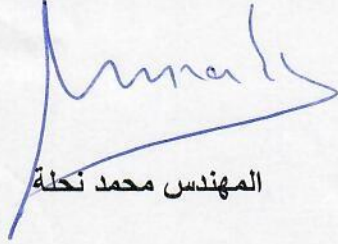 المهندس محمد نحلة